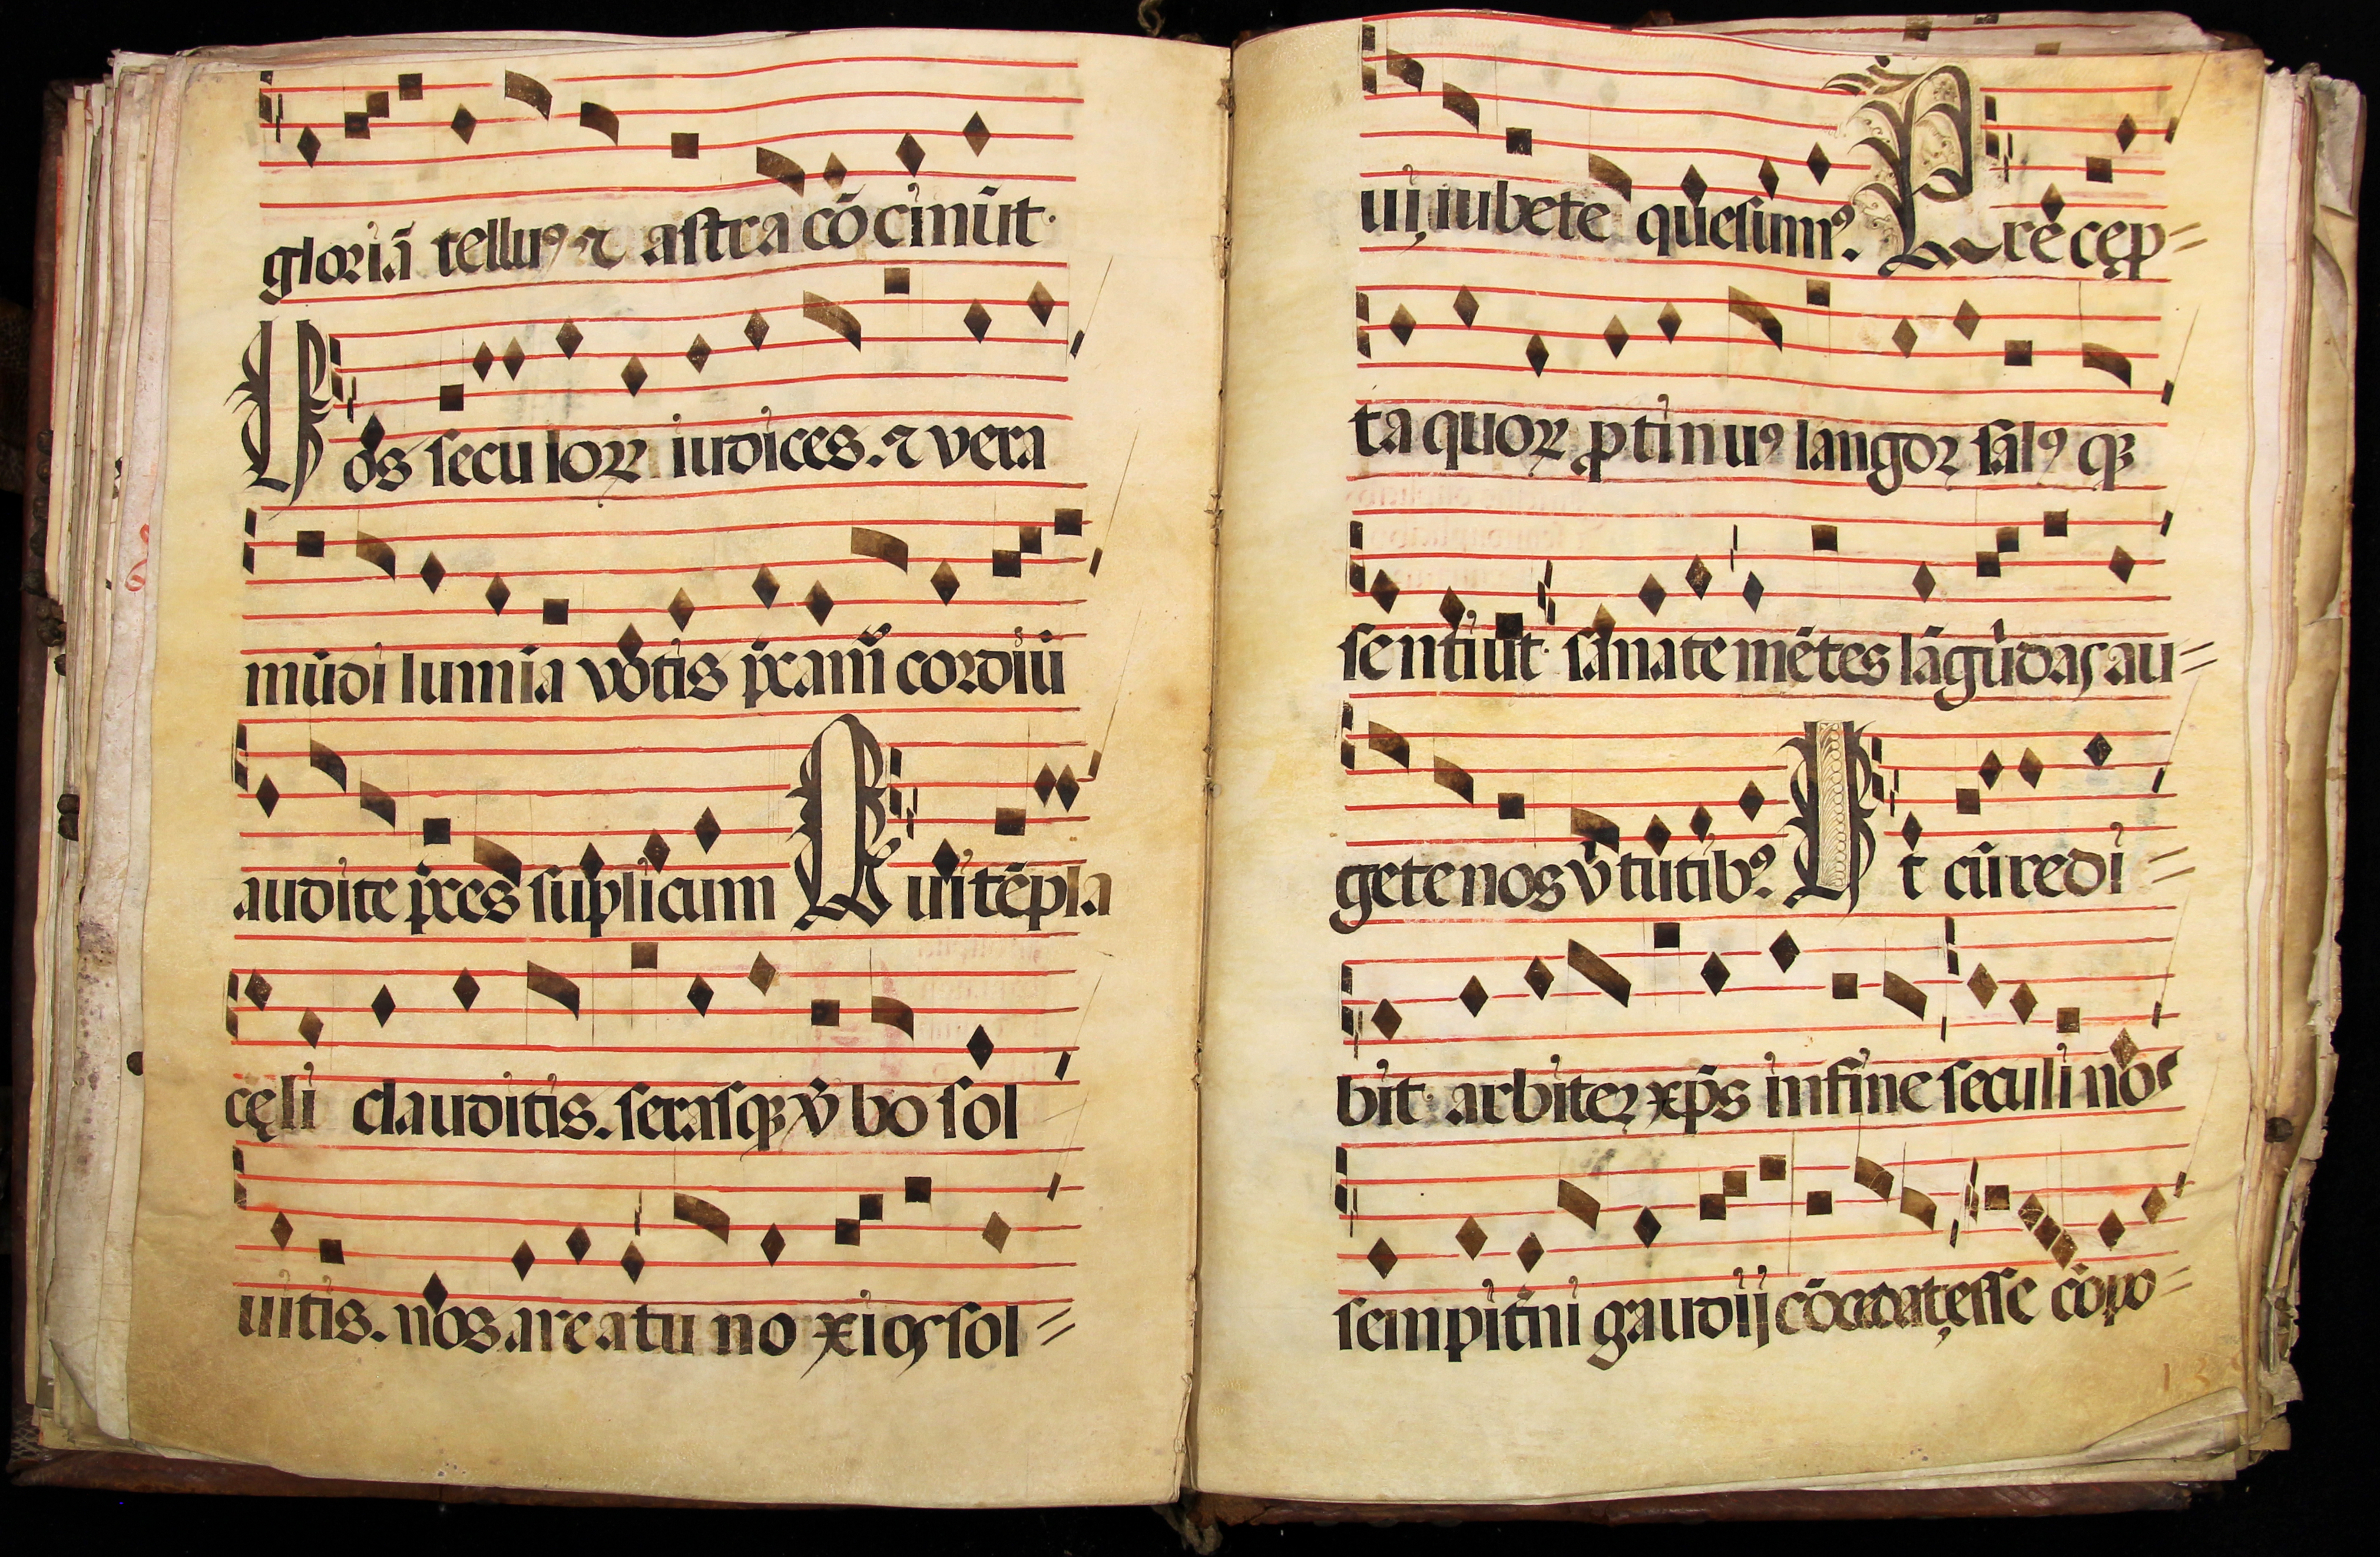 gloriā telluꝰ ⁊ astra cō cinūt·
Uos seculoꝝ iudices. ⁊ vera
mūdi lumīa votis p̄camᷤ cordiū
audite p̄ces suplicum Qui tēpla
cęli clauditis. serasqꝫ v̄bo sol
uitis. nos areatu noxios sol=
ui, iubete quesumꝰ. Precep=
ta quoꝝ ꝓtinuꝰ langoꝛ salꝰ qꝫ
sentiūt· sanate mētes lāguidas au=
gete nos v̄tutibꝰ. Ut cū redi=
bit· arbiter xp̄s in fine seculi nos
sempit̄ni gaudij cōcedat esse cōpo=